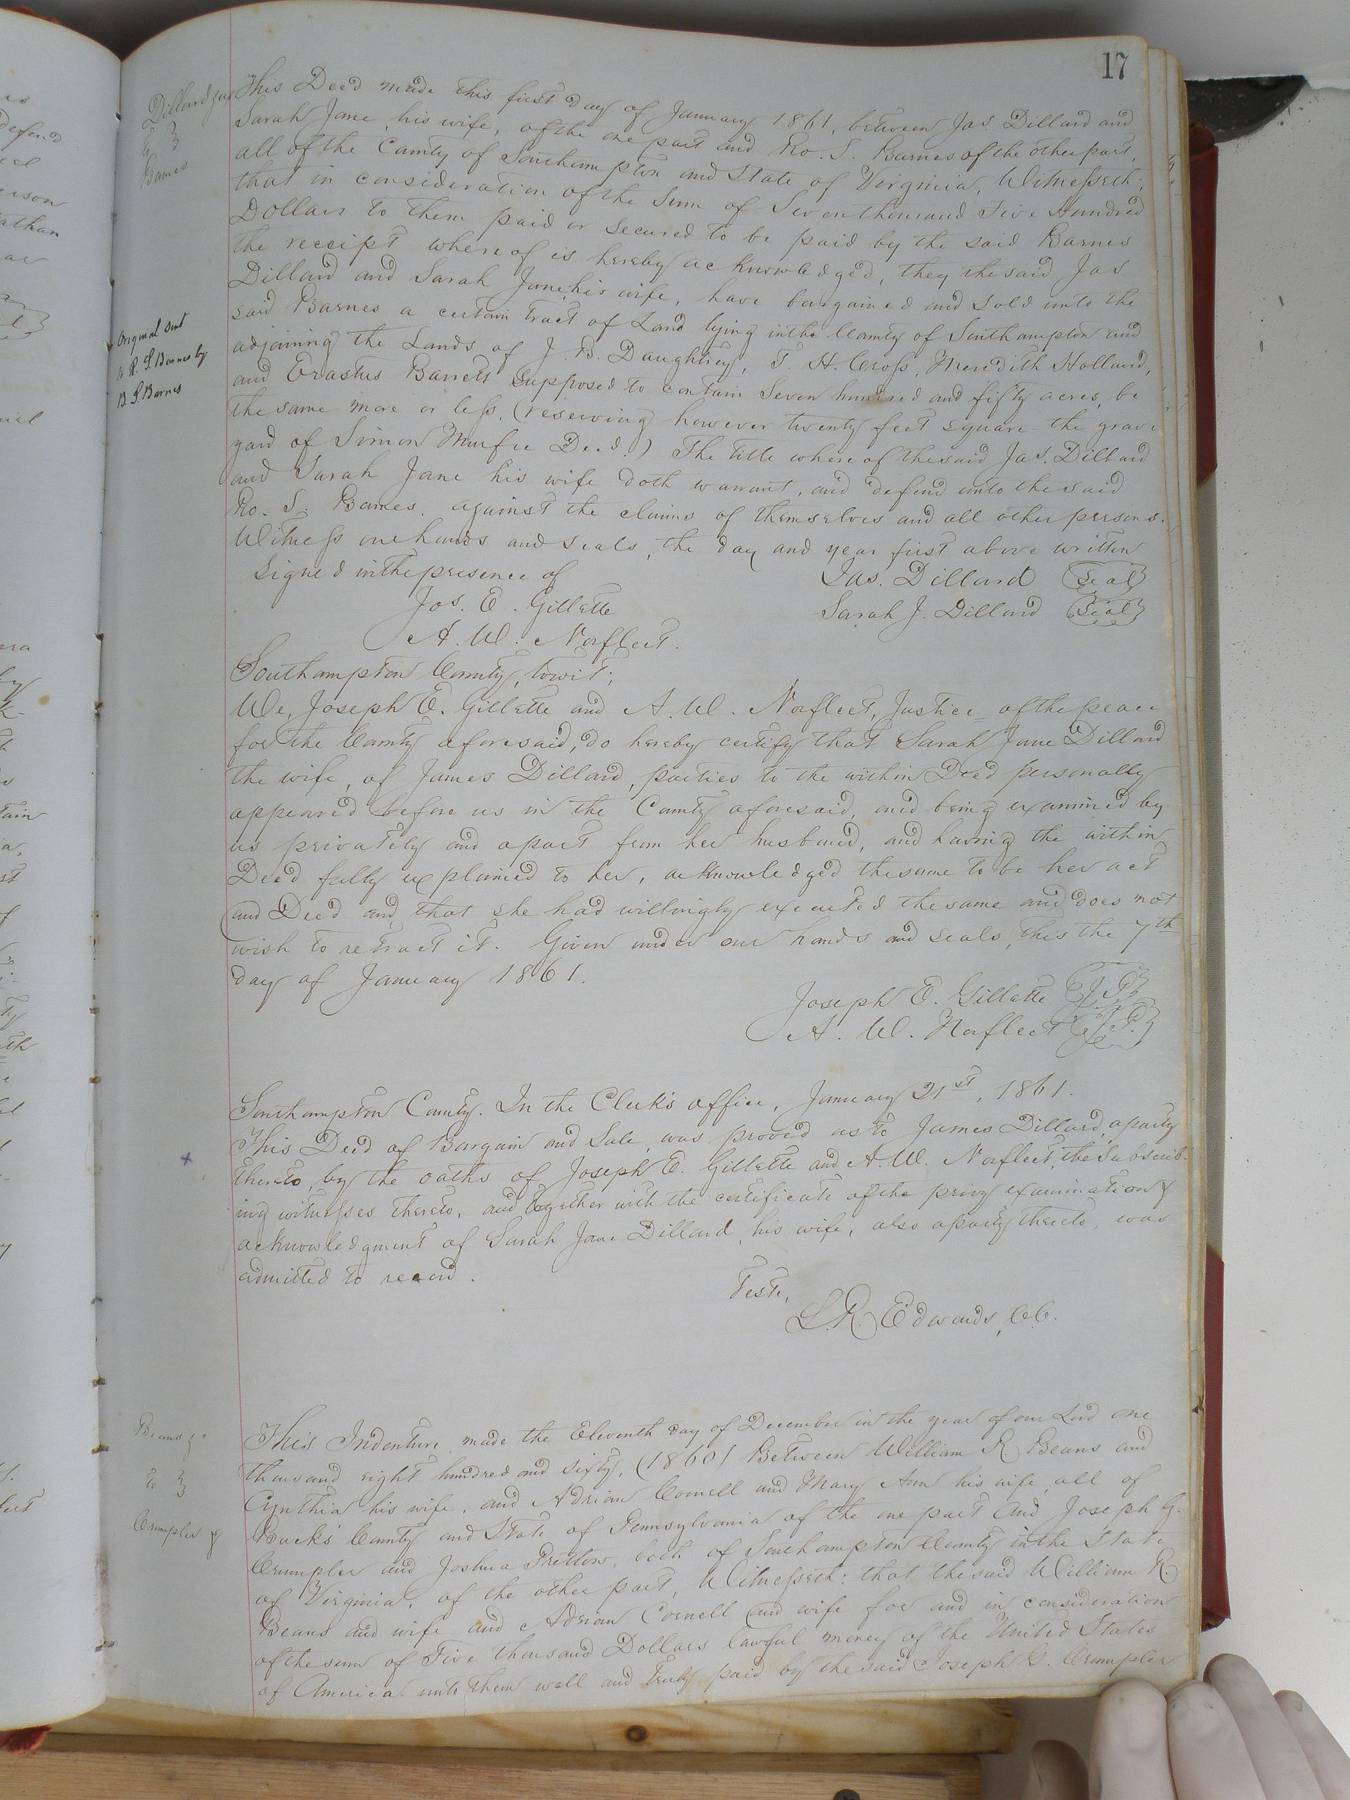 17
Dillard &ux
to
Barnes
This Deed made this first day of January 1861, between Jas Dillard and
Sarah Jane, his wife, of the one part and Ro. S. Barnes of the other part,
all of the County of Southampton and State of Virginia, Witnesseth;
that in consideration of the Sum of Seven thousand Five Hundred
Dollars to them paid or secured to be paid by the said Barnes
the receipt whereof is hereby acknowledged, they the said Jas
Dillard and Sarah Jane, his wife, have bargained and sold unto the
said Barnes a certain tract of Land lying in the County of Southampton and
adjoining the Lands of J. B. Daughtrey, T. H. Cross, Meredith Holland,
and Erastus Barrett Supposed to contain Seven hundred and fifty acres, be
the same more or less, (reserving however twenty feet square the grave
yard of Simon Murfee Decd.) The title whereof the said Jas. Dillard
and Sarah Jane his wife doth warrant, and defend unto the said
Ro. S. Barnes. against the claims of themselves and all other persons.
Witness our hands and seals, the day and year first above written
Original sent
to R. S. Barnes by
B. S. Barnes
Signed in the presence of
Jas. Dillard Seal
Jos. E. Gillette
Sarah J. Dillard Seal
A. W. Norfleet.
Southampton County, towit;
We, Joseph E. Gillette and A. W. Norfleet, Justice of the peace
for the County aforesaid, do hereby certify that Sarah Jane Dillard
the wife, of James Dillard, parties to the within Deed personally
appeared before us in the County aforesaid, and being examined by
us privately and apart from her husband, and having the within
Deed fully explained to her, acknowledged the same to be her act
and Deed and, that she had willingly executed the same and does not
wish to retract it. Given under our hands and seals, this the 7th
day of January 1861.
Joseph E. Gillette J.P.
A. W. Norfleet J.P.
Southampton County. In the Clerk's office, January 21st, 1861.
This Deed of Bargain and Sale, was proved as to James Dillard, a party
thereto, by the oaths of Joseph E. Gillette and A. W. Norfleet, the Subscrib-
ing witnesses thereto, and together with the certificate of the privy examination &
acknowledgment of Sarah Jane Dillard, his wife, also a party thereto, was
admitted to record.
Teste,
L. R. Edwards, C.C.
Beans &c
to
Crumpler &
This Indenture made the Eleventh day of December in the year of our Lord one
thousand eight hundred and sixty, (1860) Between William R Beans and
Cynthia his wife, and Adrian Cornell and Mary Ann his wife, all of
Bucks County and State of Pennsylvania of the one part and Joseph G.
Crumpler and Joshua Pretlow, both of Southampton County in the State
of Virginia, of the other part, Witnesseth: that the said William R.
Beans and wife and Adrian Cornell and wife for and in consideration
of the sum of Five thousand Dollars lawful money of the United States
of America unto them well and truly paid by the said Joseph G. Crumpler